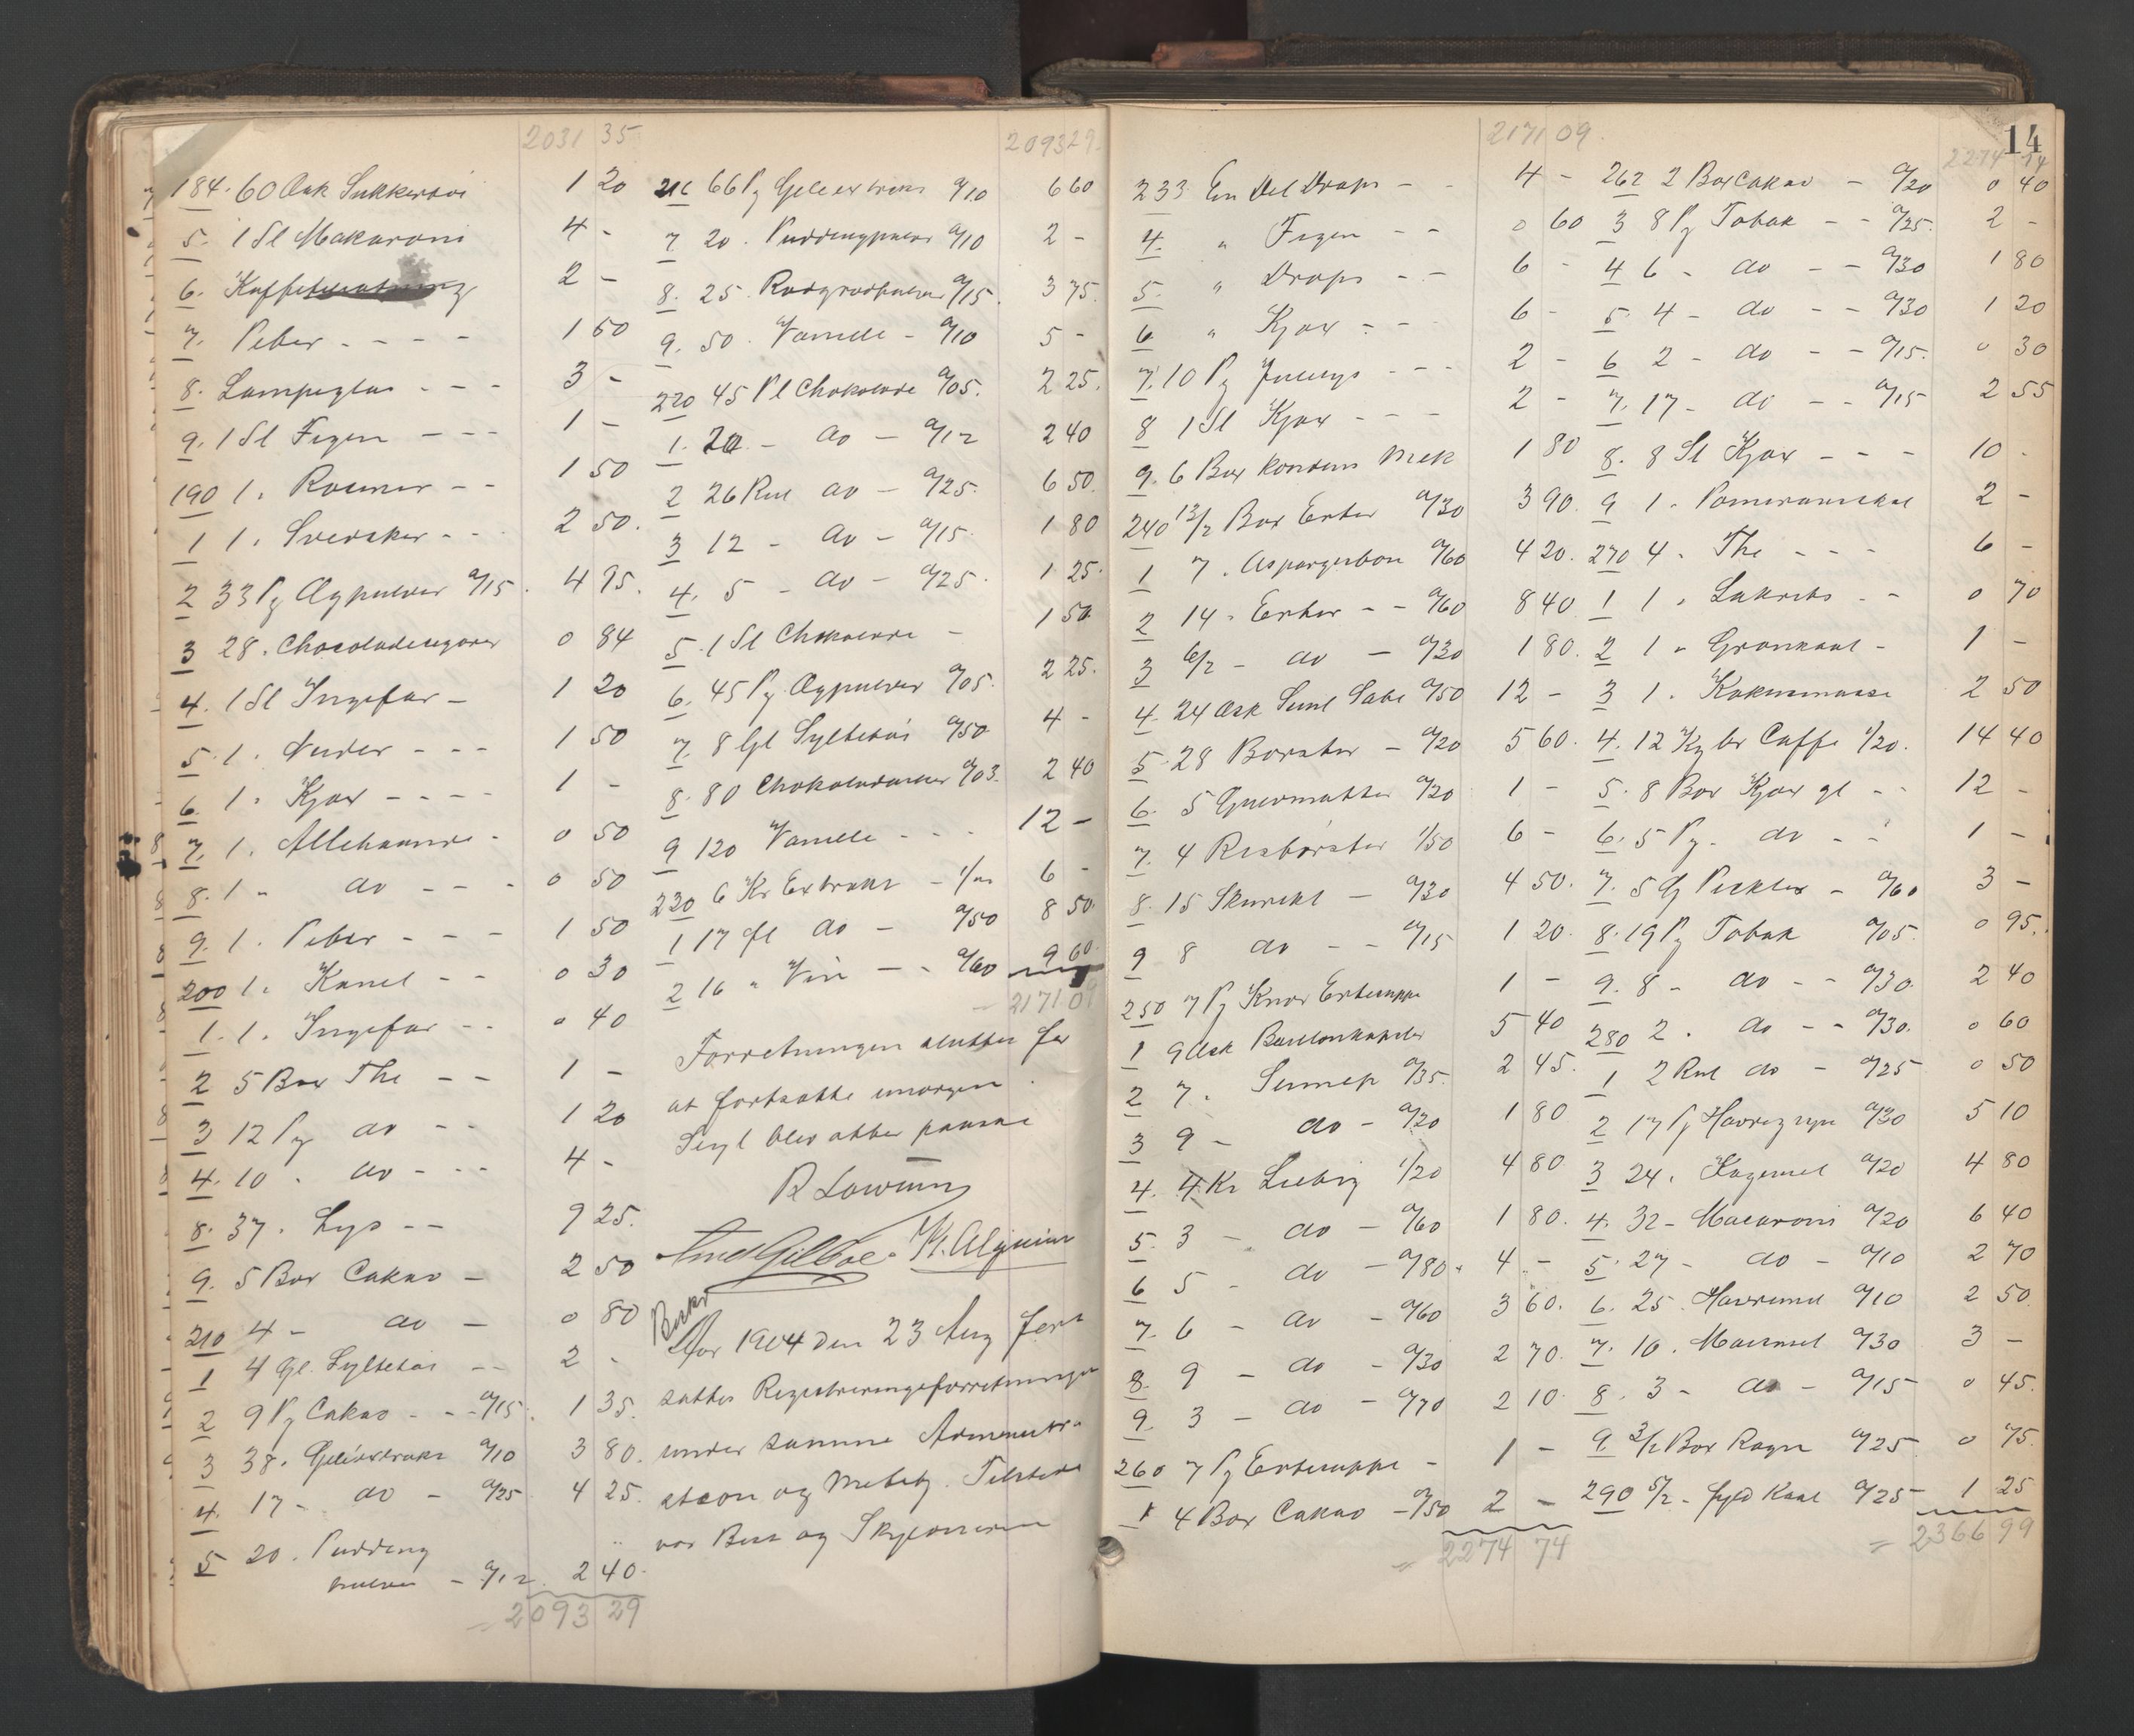 2031 35
184. 60 Ask Sukkertöi 1 20
5. 1 Sl Makaroni 4 -
6. Kaffe 2 -
7. Peber - - - - 1 50
8. Lampeglas - - - 3 -
9. 1 Sl Figen - - - 1 -
190 1. Rosiner - - 1 50
1 1. Svedsker - - 2 50.
2 33 Pg Æggpulver a/15. 4 95.
3 28. Chocoladecigarer 0 84
4. 1 Sl Ingefær - 1 20
5. 1. Nudler - - - 1 50
6. 1. Kjæx - - - - 1 -
7. 1. Allehaande - 0 50
8. 1 - do - - - 0 50
9. 1. Peber - - - 1 50
200 1. Kanel - - 0 30
1. 1. Ingefær - - 0 40
2 5 Box The - - 1 -
3 12 Pg do - - 1 20
4. 10 . do - - - 4 -
8. 37. Lys - - 9 25.
9. 5 Box Cakao - 2 50
210 4 - do - 0 80
1 4 Gl. Syltetöi - - 2 -
2 9 Pg Cakao - - - a/15. 1 35.
3 38. Geléextrakt a/10 3 80.
4. 17 - do - a/25 4 25.
5 20. Pudding
pulver - a/12. 2 40.
= 2093 29
2093 29.
216 66 Pg Geleextrakt a/10 6 60
7 20. Puddingpulver a/10 2 -
8. 25. Rødgrødpulver a/15. 3 75.
9. 50. Vanille - a/10 5 -
220 45 Pl Chokolade a/05. 2 25.
1. 20 - do - a/12 2 40
2 26 Rul do - a/25. 6 50.
3 12 - do - a/15. 1 80
4. 5 - do - a/25. 1 25.
5. 1 Sl Chokolade - 1 50
6. 45 Pg. Æggpulver a/05. 2 25.
7. 8 Gl Syltetöi a/50. 4 -
8. 80 Chokolade a/03. 2 40
9 120 Vanille - - - 12 -
230 6 Kr Extrakt - 1/00 6 -
1 17 fl do - a/50 8 50.
2 16 " Vin - - a/60 9 60.
- 2171 09
Forretningen sluttes for
at fortsætte imorgen.
Segl blev atter paasat
R Lowum
K. Algeier
Beskr
Aar 1904 den 23 Aug fort
sattes Registreringsforretningen
under samme Administra
tion og Medbetj. Tilstede
var Best og Skyldneren
2171 09.
233 En Del Drops - - 4 -
4. " Figen - - 0 60
5. " Drops - - 6 -
6 " Kjæx - - - 6 -
7. 10 Pg Julelys - - - 2 -
8 1 Sl Kjæx - - - 2 -
9. 6 Box kondens Melk 1 80
240 13/2 Box Erter a/30 3 90.
1 7. Aspargesbön a/60 4 20.
2 14 - Erter - - a/60 8 40
3 6/2 - do - a/30 1 80.
4. 24 Ask a/50 12 -
5. 28 Börster - a/20 5 60.
6. 5 Gulvmatter a/20 1 -
7. 4 Risbörster 1/50 6 -
8. 15 Skurekl - a/30 4 50.
9 8 do - - a/15 1 20.
250 7 Pg Knor Ertesuppe 1 -
1 9 Ask Bouillonkapsler 5 40
2 7. Sennep a/35. 2 45.
3 9 - do - a/20 1 80
4. 4 Kr Liebig 1/20 4 80
5. 3 - do - a/60 1 80.
6 5 - do - a/80. 4 -
7. 6 - do - a/60 3 60.
8. 9 - do - a/30 2 70.
9. 3 - do - a/70 2 10.
260 7 Pg Ertesuppe - 1 -
1 4 Box Cakao - a/50 2 -
= 2274 74
14
2274 74
262 2 Box Cakao - a/20 0 40
3 8 Pg Tobak - - a/25. 2 -
4 6 - do - - a/30 1 80
5. 4 - do - - a/30 1 20
6 2 - do - - a/15. 0 30
7. 17 - do - - a/15 2 55
8. 8 Sl Kjæx - - - 10 -
9 1. Pomeransskal 2 -
270 4. The - - - 6 -
1 1. Lakrits - - 0 70
2 1 " Grönkaal - 1 -
3 1. Kokusmasse 2 50
4. 12 Kg br Caffe 1/20. 14 40
5. 8 Box Kjæx gl - - 12 -
6. 5 Pg. do - - 1 -
7. 5 Gl Pickles - a/60 3 -
8. 19 Pg Tobak a/05. 0 95.
9. 8 - do - - a/30. 2 40
280 2. do - - a/30. 0 60
1 2 Rul do - a/25 0 50
2 17 Pg Havregryn a/30 5 10
3 24. a/20 4 80
4. 32 - Macaroni a/20 6 40
5. 27 - do - a/10 2 70
6. 25. Havremel a/10 2 50
7. 10. Maismel a/30 3 -
8. 3 - do - a/15 0 45.
9. 3/2 Box a/25 0 75.
290 5/2 - fyld Kaal a/25 1 25
= 2366 99